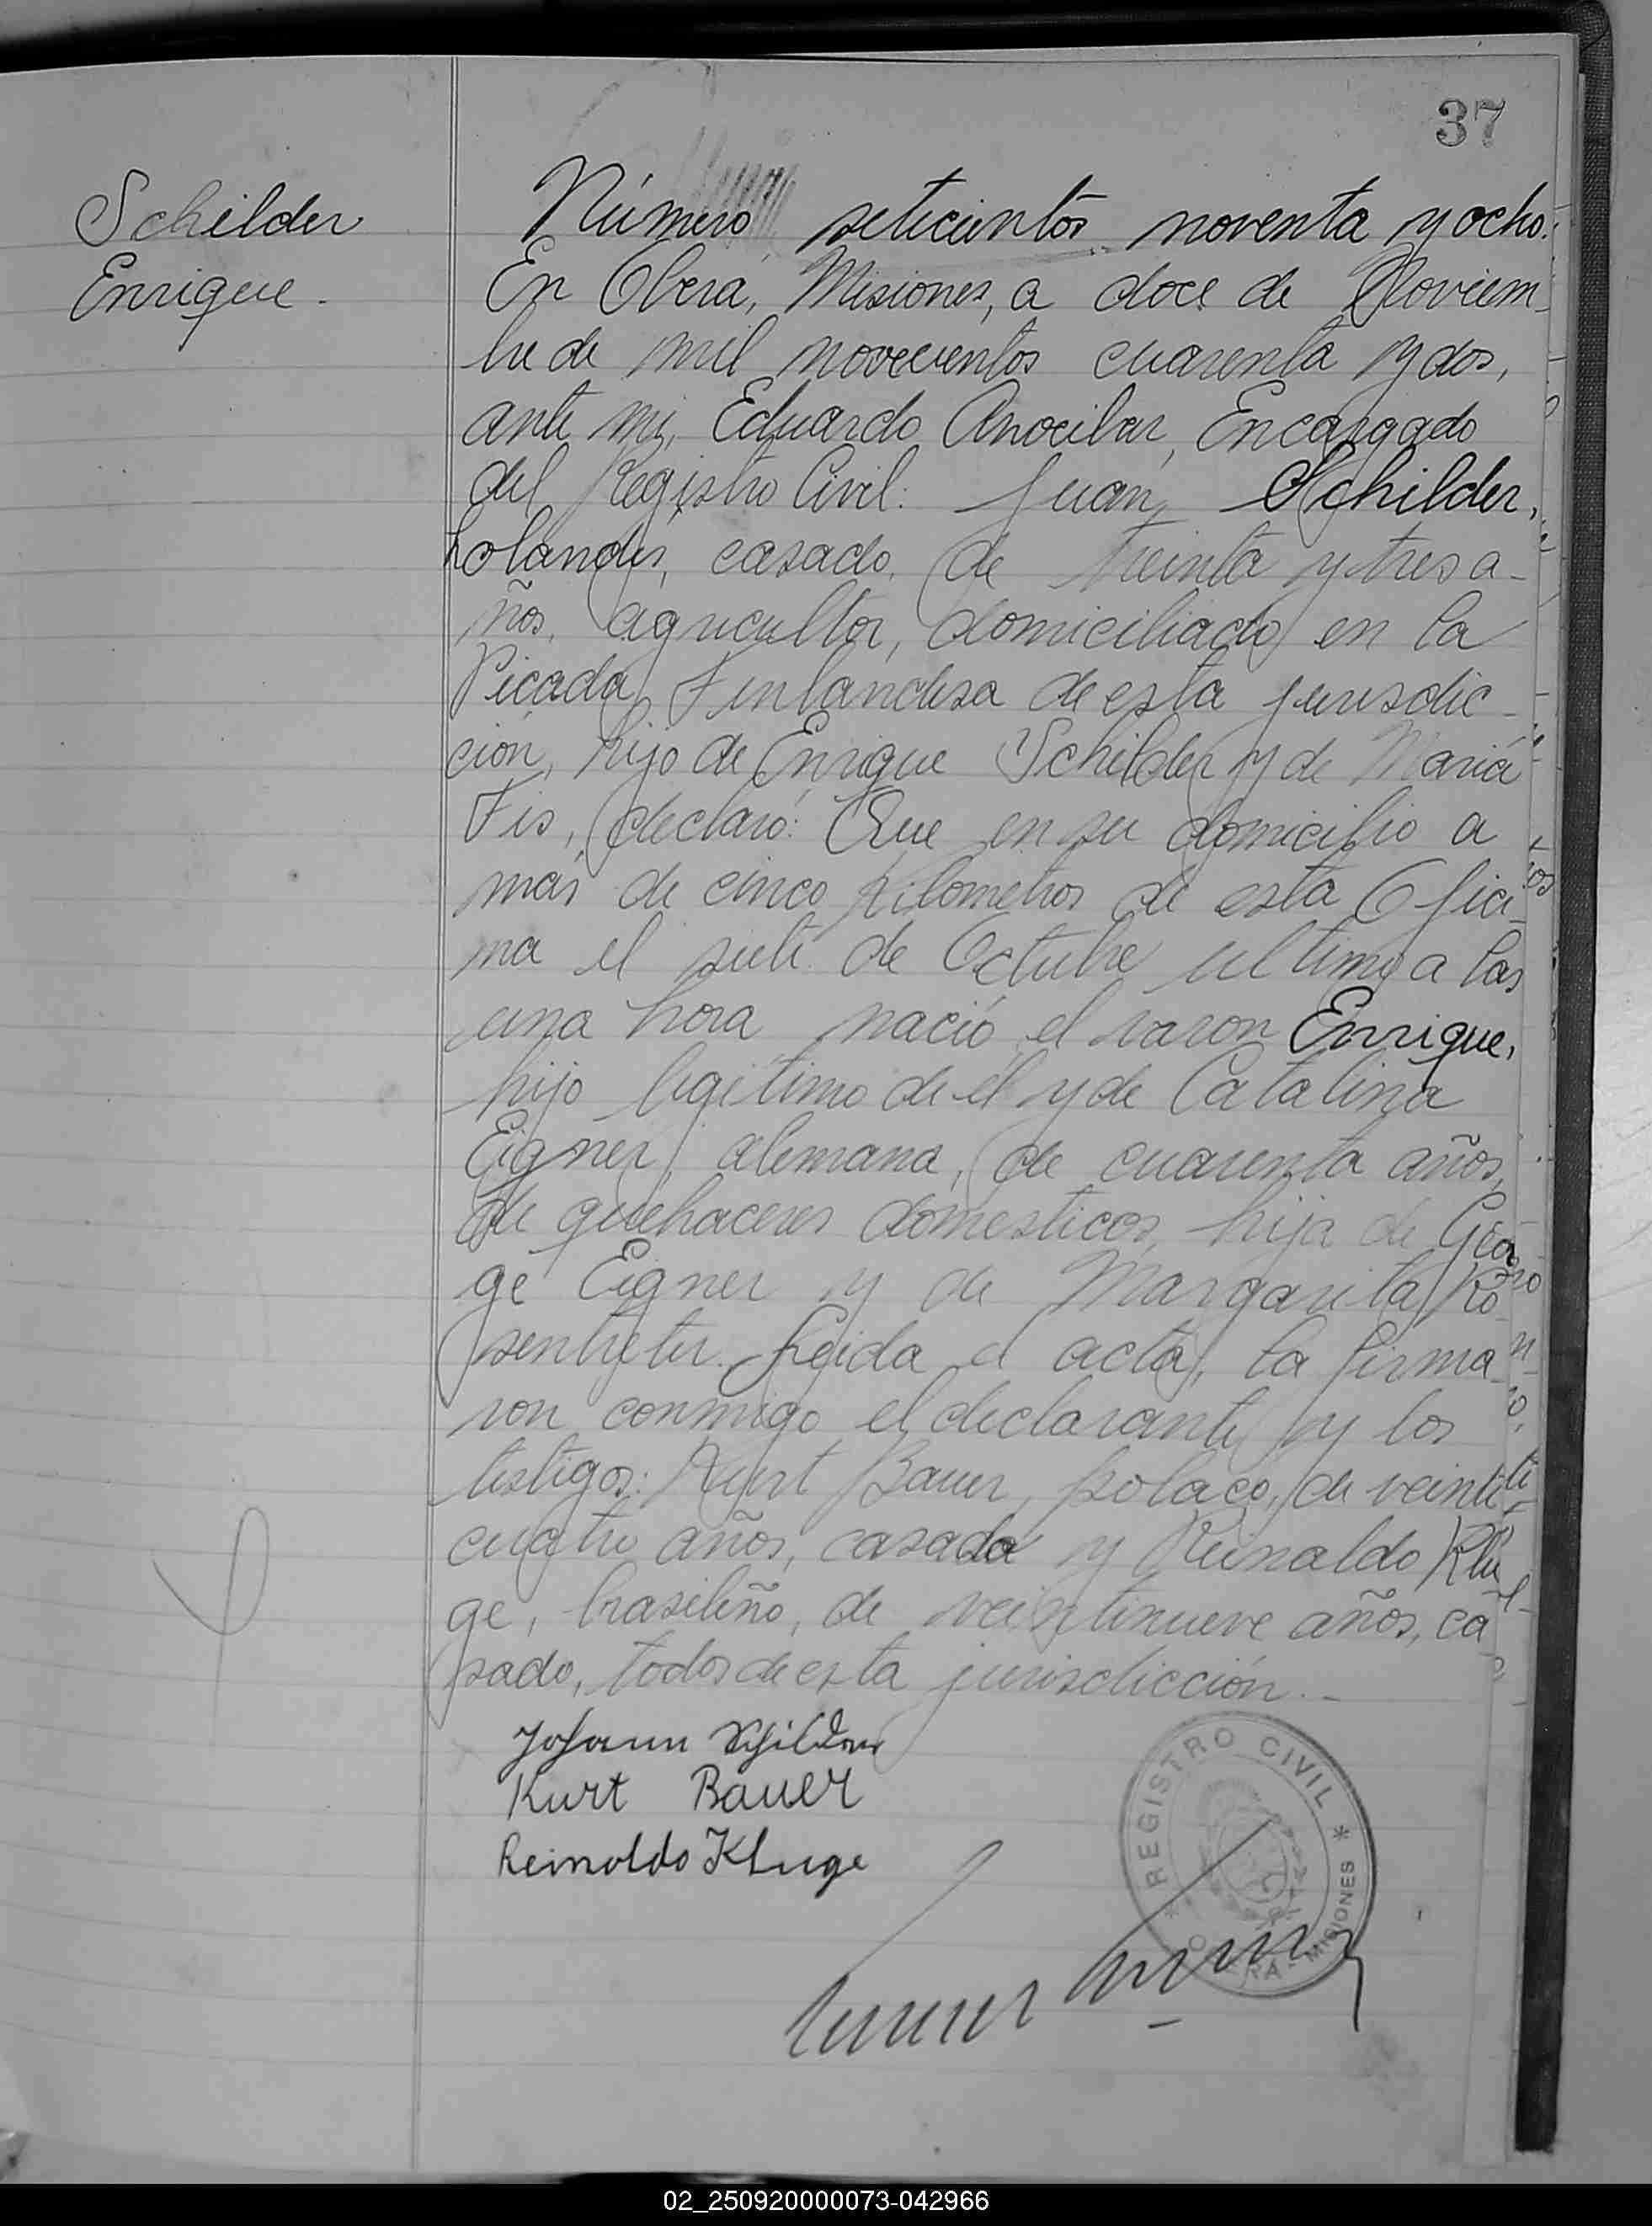 37
Schilder
Enrique.
Número setecientos noventa y ocho.
En Oberá, Misiones, a doce de Noviem
bre de mil novecientos cuarenta y dos,
ante mi, Eduardo Anocibar, Encargado
del Registro Civil: Juan Schilder,
holandés, casado, de treinta y tres a-
ños, agricultor, domiciliado en la
Picada Finlandesa de esta jurisdic-
ción, hijo de Enrique Schilder y de María
Fis, declaró: Que en su domicilio a
más de cinco kilometros de esta Ofici-
na el siete de Octubre ultimo a las
una hora nació el varon Enrique,
hijo legitimo de él y de Catalina
Eigner, alemana, de cuarenta años,
de quehaceres domesticos, hija de Geor
ge Eigner y de Margarita Ro-
sentreter. Leida el acta, la firma-
ron conmigo el declarante y los
testigos: Kurt Bauer, polaco, de veinti
cuatro años, casado y Reinaldo Klu-
ge, brasileño, de veintinueve años, ca
sado, todos de esta jurisdicción.-
Johann Schilder
Kurt Bauer
Reinoldo Kluge
REGISTRO CIVIL
OBERA - MISIONES
02_250920000073-042966